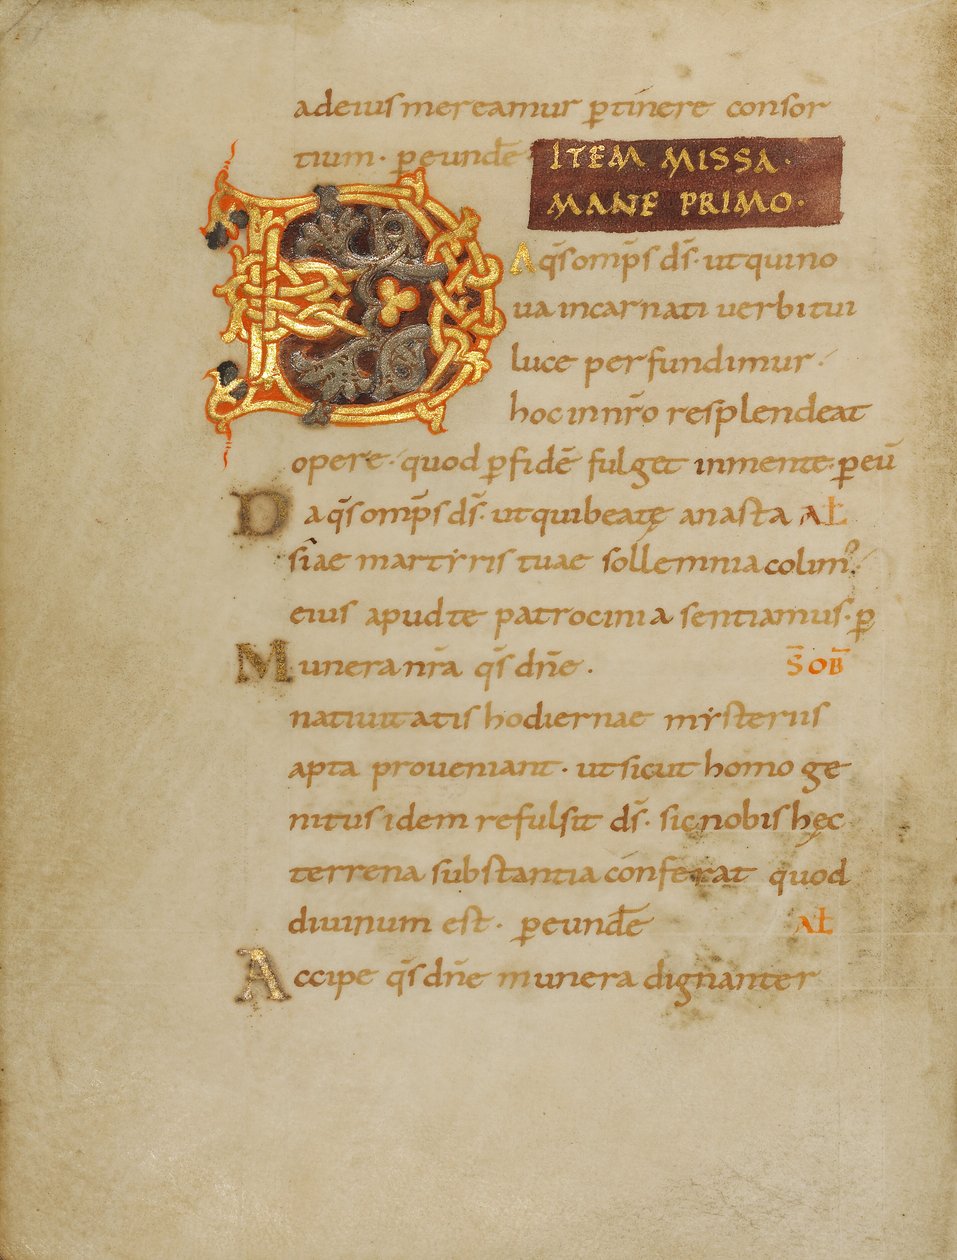 adeius mereamur ꝑtinere consor
tium · ꝑeundē
ITEM MISSA ·
MANE PRIMO ·
DA q̄s omp̄s d̄s · ut qui no
ua incarnati uerbi tui
luce perfundimur ·
hoc in nr̄o resplendeat
opere · quod ꝑ fidē fulget in mente · ꝑ eū
Da q̄s omp̄s d̄s · ut qui beatę anasta AL̄
siae martẏris tuae sollemnia colim᷒ ·
eius apud te patrocinia sentiamus · ꝑ
Munera nr̄a q̄s dn̄e · S̄ OB̄
natiuitatis hodiernae mẏsteriis
apta proueniant · ut sicut homo ge
nitus idem refulsit d̄s · sic nobis hęc
terrena substantia conferat quod
diuinum est · ꝑeundē AL̄
Accipe q̄s dn̄e munera dignanter